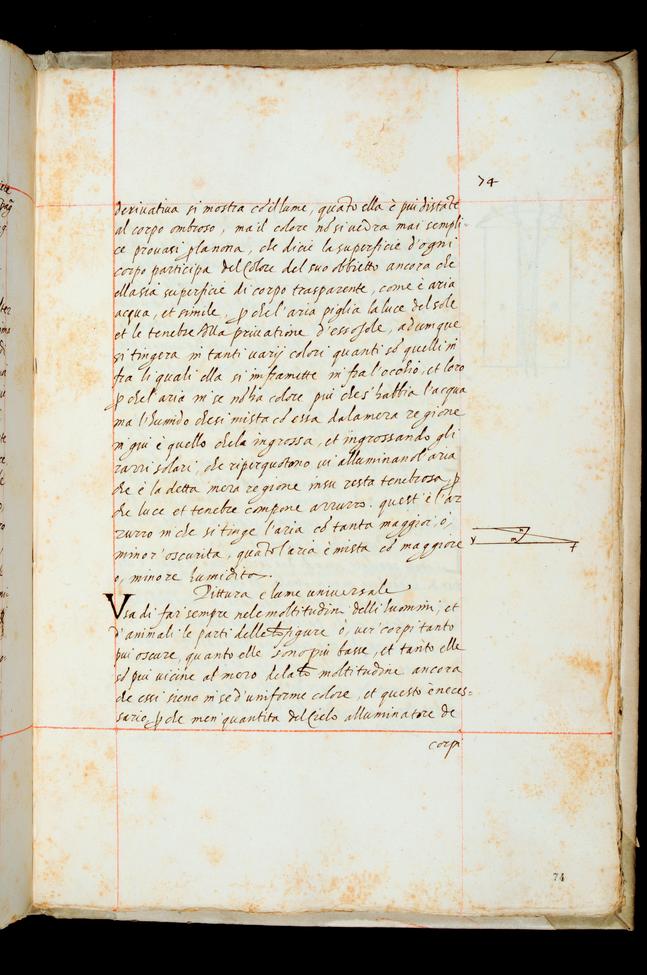 74
derivativa si mostra cō il lume, quāto ella è piu distāte
al corpo ombroso, ma il colore nō si vedra mai sempli-
ce provasi p la nona, che dicie la superficie d'ogni
corpo participa del Colore del suo obbietto ancora che
ella sia superficie di corpo trasparente, come è aria
acqua, et simile, p che l'aria piglia la luce del sole
et le tenebre dlla privatione d'esso sole, adumque
si tingera in tanti varij colori quanti sō quelli in
fra li quali ella si inframette in fra l'occhio, et loro
p che l'aria in se nō ha colore piu che s'habbia l'acqua
ma l'humido che si mista cō essa dala meza regione
in giu è quello che la ingrossa, et ingrossando gli
razzi solari, che ripercuotono vi alluminano l'aria
che è la detta meza regione in su resta tenebrosa, p
che luce et tenebre compone azzurro. quest'è l'az
zurro in che si tinge l'aria cō tanta maggior', ò,
minor' oscurita, quāto l'aria è mista cō maggiore
o, minore humidita.
Pittura e lume universale
Vsa di far sempre nele moltitudin delli huomini, et
d'animali le parti delle figure ò, ver' corpi tanto
piu oscure, quanto elle sono più basse, et tanto elle
sō piu vicine al mezo dela moltitudine ancora
che essi sieno in se d'uniforme colore, et questo è neces=
sario p che men' quantita del Cielo alluminatore de
corpi
74